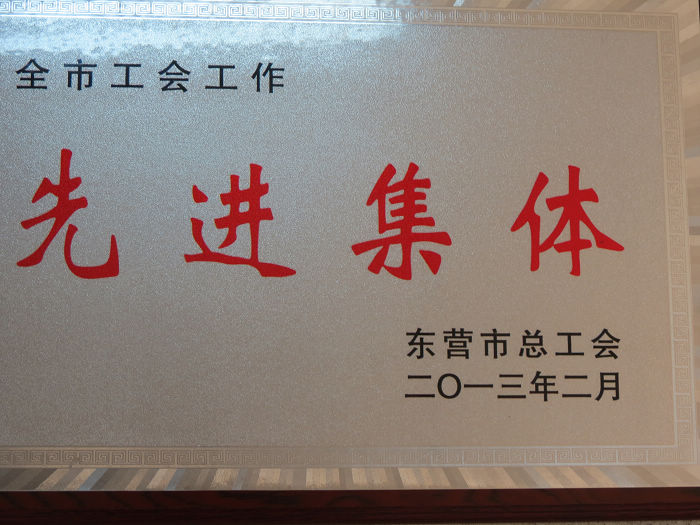 全市工会工作
先进集体
东营市总工会
二〇一三年二月